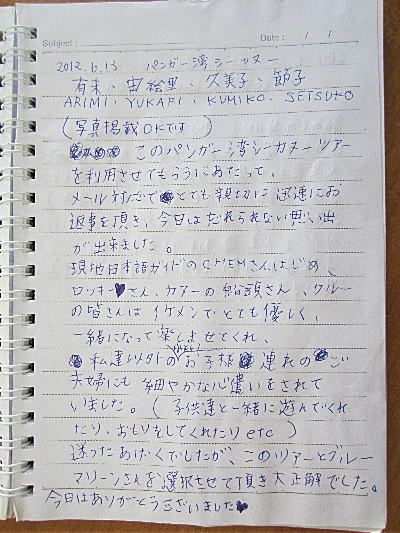 Subject :
Date : / /
2012.6.13 パンガー湾シーカヌー
有未、由絵里、久美子、節子
ARIMI, YUKARI, KUMIKO, SETSUKO
(写真掲載OKです)
このパンガー湾シーカヌーツアー
を利用させてもらうにあたって、
メール対応でとても親切に迅速にお
返事を頂き、今日は忘れられない思い出
が出来ました。
現地日本語ガイドのさんはじめ、
ロッキー♥さん、カヌーの船頭さん、クルー
の皆さんは イケメンでとても優しく、
一緒になって楽しませてくれ、
私達以外のお子様連れのご
夫婦にも 細やかな心遣いをされて
いました。(子供達と一緒に遊んでくれ
たり、おもりをしてくれたりetc)
迷ったあげくでしたが、このツアーとブルー
マリーンさんを選択させて頂き大正解でした。
今日はありがとうございました♥